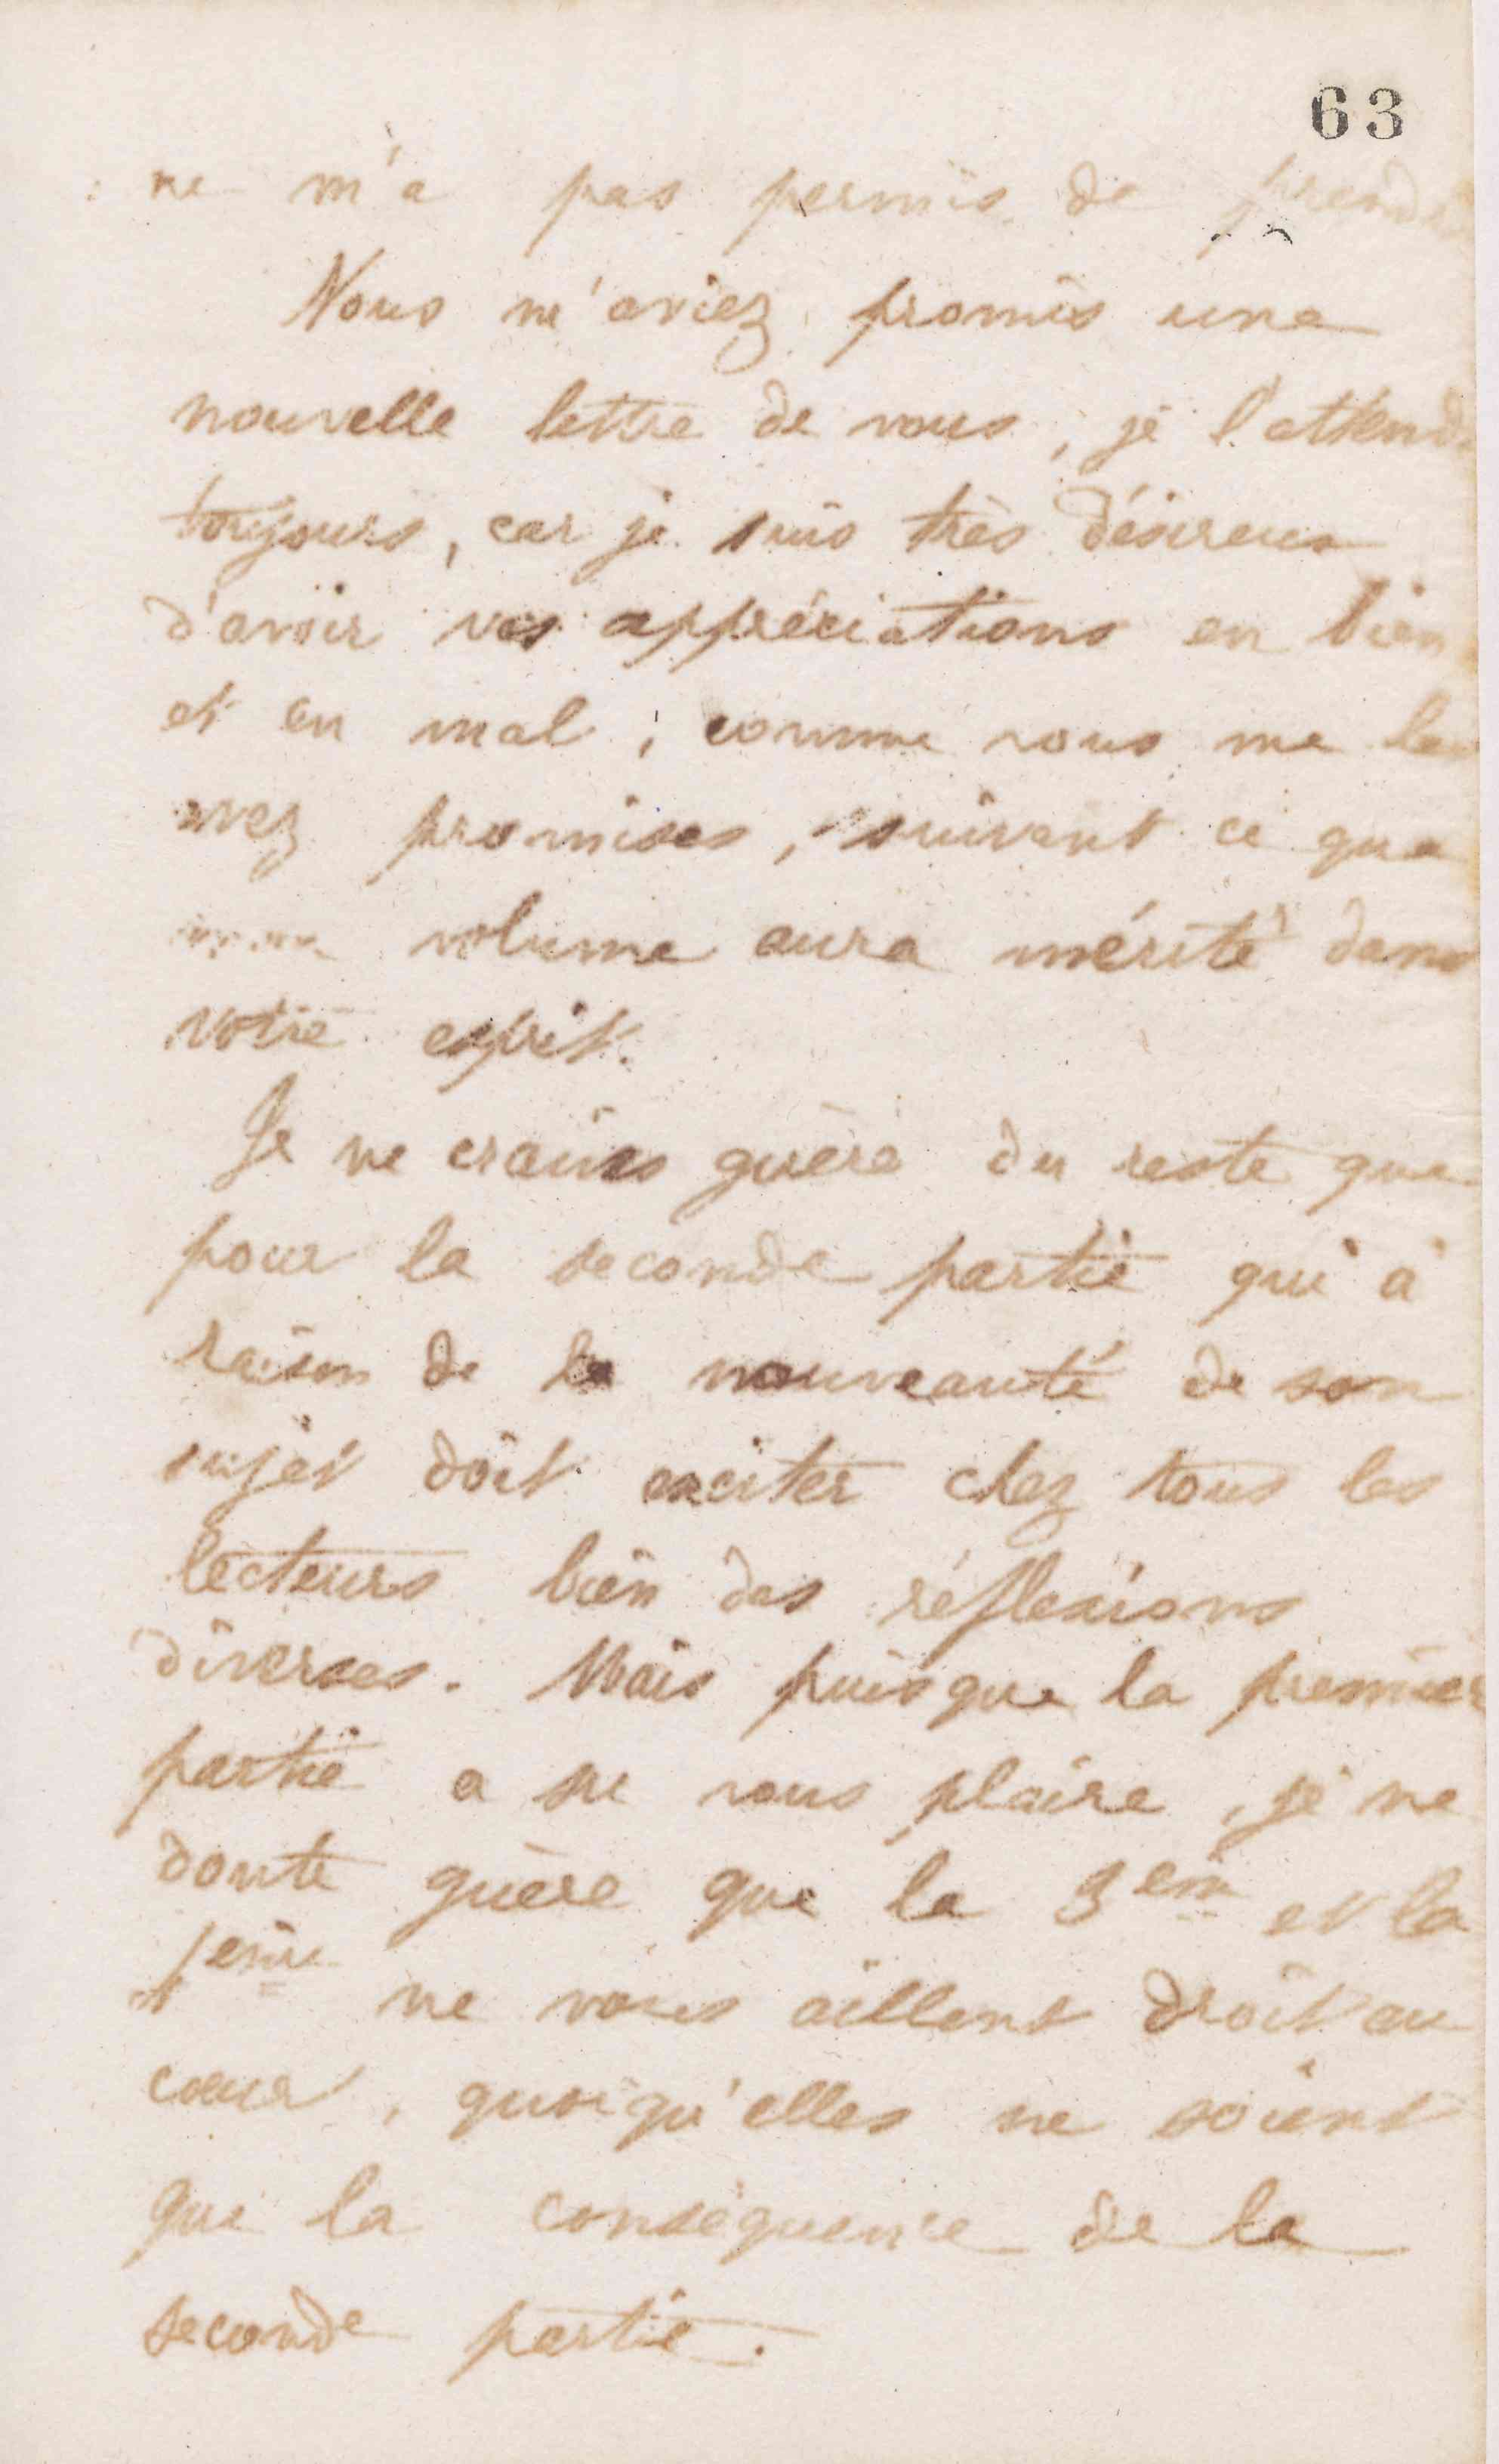 63
ne m'a pas permis de prendre
Vous m'aviez promis une
nouvelle lettre de vous, je l'attends
toujours, car je suis très désireux
d'avoir vos appréciations en bien
et en mal, comme vous me les
avez promises, suivant ce que
mon volume aura mérité dans
votre esprit.
Je ne crains guère du reste que
pour la seconde partie qui à
raison de la nouveauté de son
sujet doit exciter chez tous les
lecteurs bien des réflexions
diverses. Mais puisque la premier
partie a su vous plaire, je ne
doute guère que la 3em et la
ne vous aillent droit au
cœur, quoiqu'elles ne soient
que la conséquence de la
seconde partie.